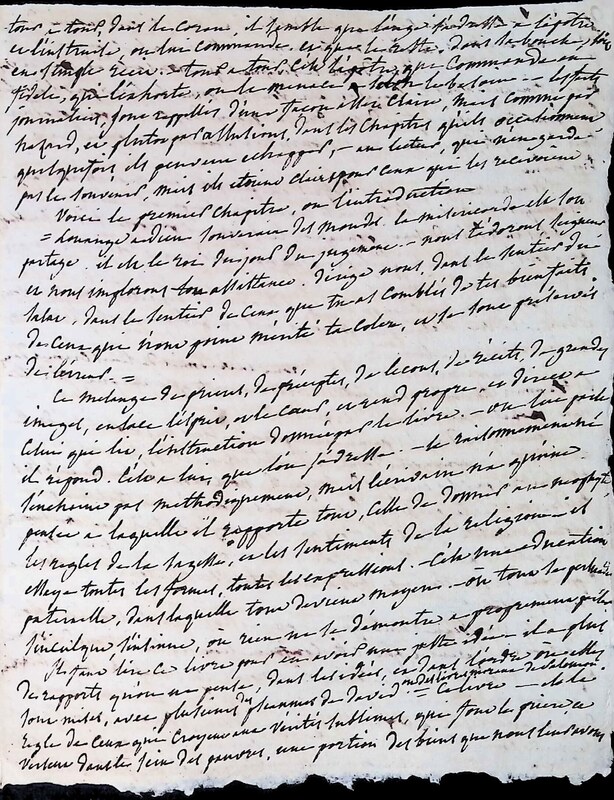 tour a tour, dans le coran, il semble que l'ange s'adresse a l'apotre
et l'instruise, ou lui commande, et que le reste, dans la bouche, soit
en simple recit. tour a tour, c'est l'apotre, que commande au
fidele, que l'exhorte, ou le menace le balance - les faits
journaliers, sont rappellés d'une façon assez claire, mais comme par
hazard, et plutot par allusions, dans les chapitres qu'ils occasionnent
quelquefois ils peuvent echapper, - au lecteur, qui n'en garde
pas le souvenir, mais ils etoient clairs pour ceux qui les recevoient
Voici le premier chapitre, ou l'introduction
= Louange a dieu souverain des mondes. la misericorde est son
partage. il est le roi du jour du jugement. - nous t'adorons seigneur
et nous implorons ton assistance. dirige nous, dans le sentier du
salut, dans le sentier de ceux que tu as comblés de tes bienfaits.
de ceux que n'ont point mérité ta colere, et se sont préservés
de l'erreur. =
Ce mélange de prieres, de préceptes, de leçons, de récits, de grandes
images, enlace l'esprit, ou le coeur, et rend propre, et directe a
celui qui lit, l'instruction donnée par le livre. - on lui parle
il répond. c'est a lui, que l'on s'adresse - le raisonnement ne
s'enchaine pas methodiquement, mais l'écrivain n'a qu'une
pensée a laquelle il rapporte tout, celle de donner au neophyte
les regles de la sagesse, et les sentiments de la religion - il
essaye toutes les formes, toutes les expressions. - C'est une education
paternelle, dans laquelle tout devient moyens. - ou tout se persuade,
s'inculque s'insinue, ou rien ne se demontre a proprement parler
Il faut lire ce livre pour en avoir une juste idée - il a plus
de rapports qu'on ne pense, dans les idées, et dans l'ordre ou elles
sont mises, avec plusieurs des pseaumes de david = Ce livre - est la
regle de ceux qui croyent aux verités sublimes, que font la priere, et
versent dans le sein des pauvres, une portion des biens que nous leur avons